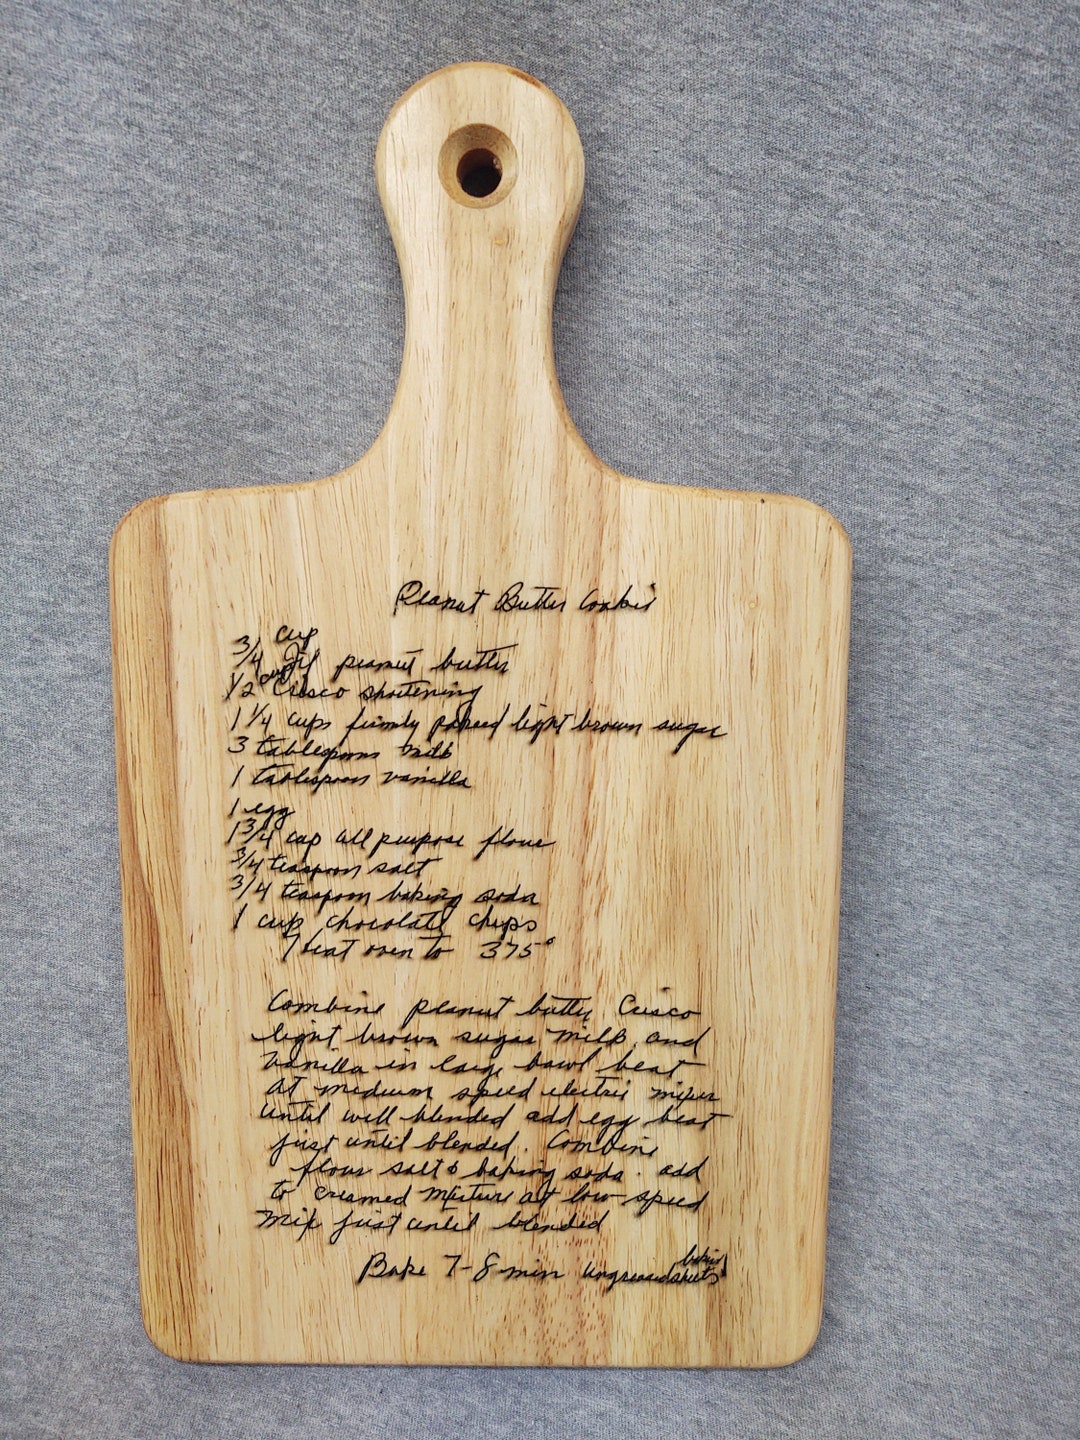 Peanut Butter Cookies
3/4 cup Jif peanut butter
1/2 cup Crisco shortening
1 1/4 cups firmly packed light brown sugar
3 tablespoons milk
1 tablespoon vanilla
1 egg
1 3/4 cup all purpose flour
3/4 teaspoon salt
3/4 teaspoon baking soda
1 cup chocolate chips
Heat oven to 375°
Combine peanut butter, Crisco
light brown sugar milk and
vanilla in large bowl beat
at medium speed electric mixer
until well blended add egg beat
just until blended. Combine
flour salt & baking soda. add
to creamed mixture at low speed
mix just until blended
Bake 7-8 min ungreased baking sheets